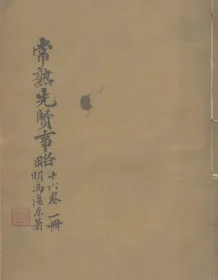 常熟先贤事略
十六卷 一冊
明馮復京著